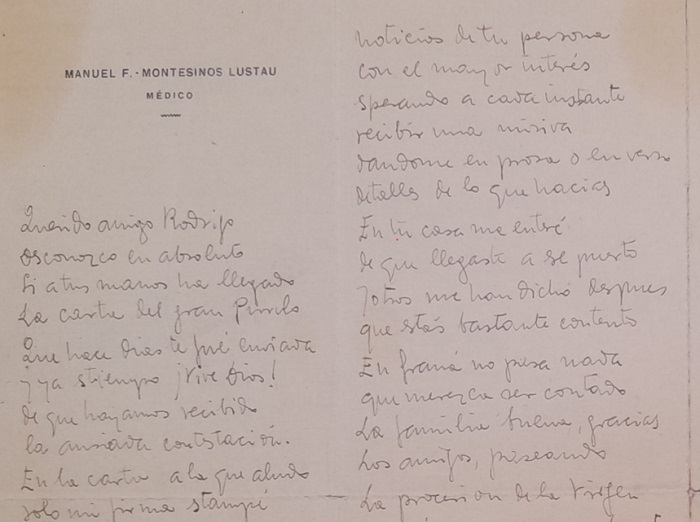 MANUEL F.-MONTESINOS LUSTAU
MÉDICO
Querido amigo Rodrigo
Desconozco en absoluto
Si a tus manos ha llegado
La carta del gran
Que hace dias te fué enviada
y ya es tiempo ¡Vive Dios!
de que hayamos recibido
la ansiada contestación.
En la carta a la que aludo
solo mi firma stampé
noticias de tu persona
con el mayor interés
sperando a cada instante
recibir una misiva
dandome en prosa o en verso
detalles de lo que hacias
En tu casa me enteré
de que llegaste a se puerto
y otros me han dicho despues
que estás bastante contento
En no pasa nada
que merezca ser contado
La familia buena, gracias
Los amigos, paseando
La procesion de la Virgen